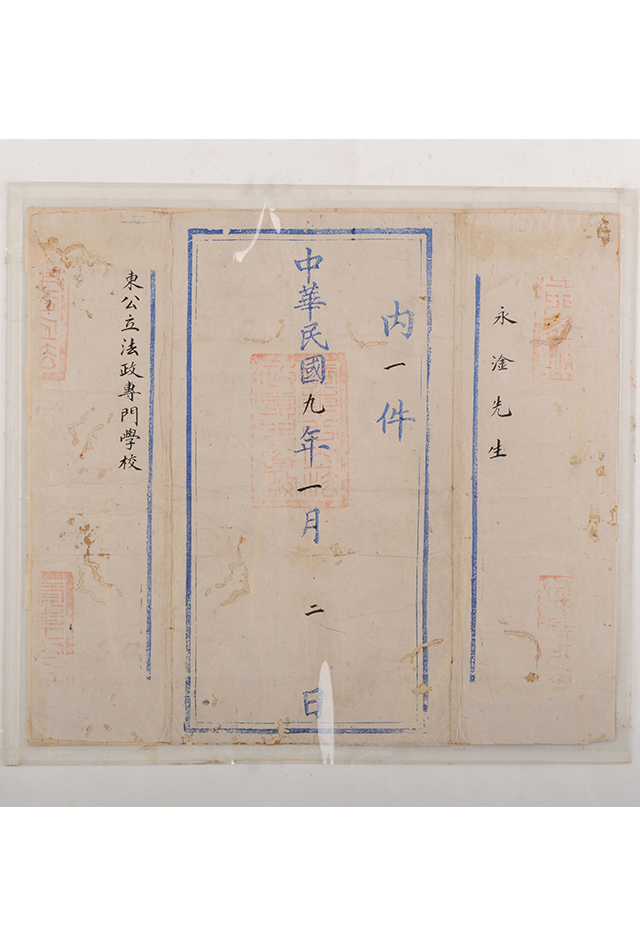 永淦先生
内一件
中華民國九年一月二日
東公立法政專門學校